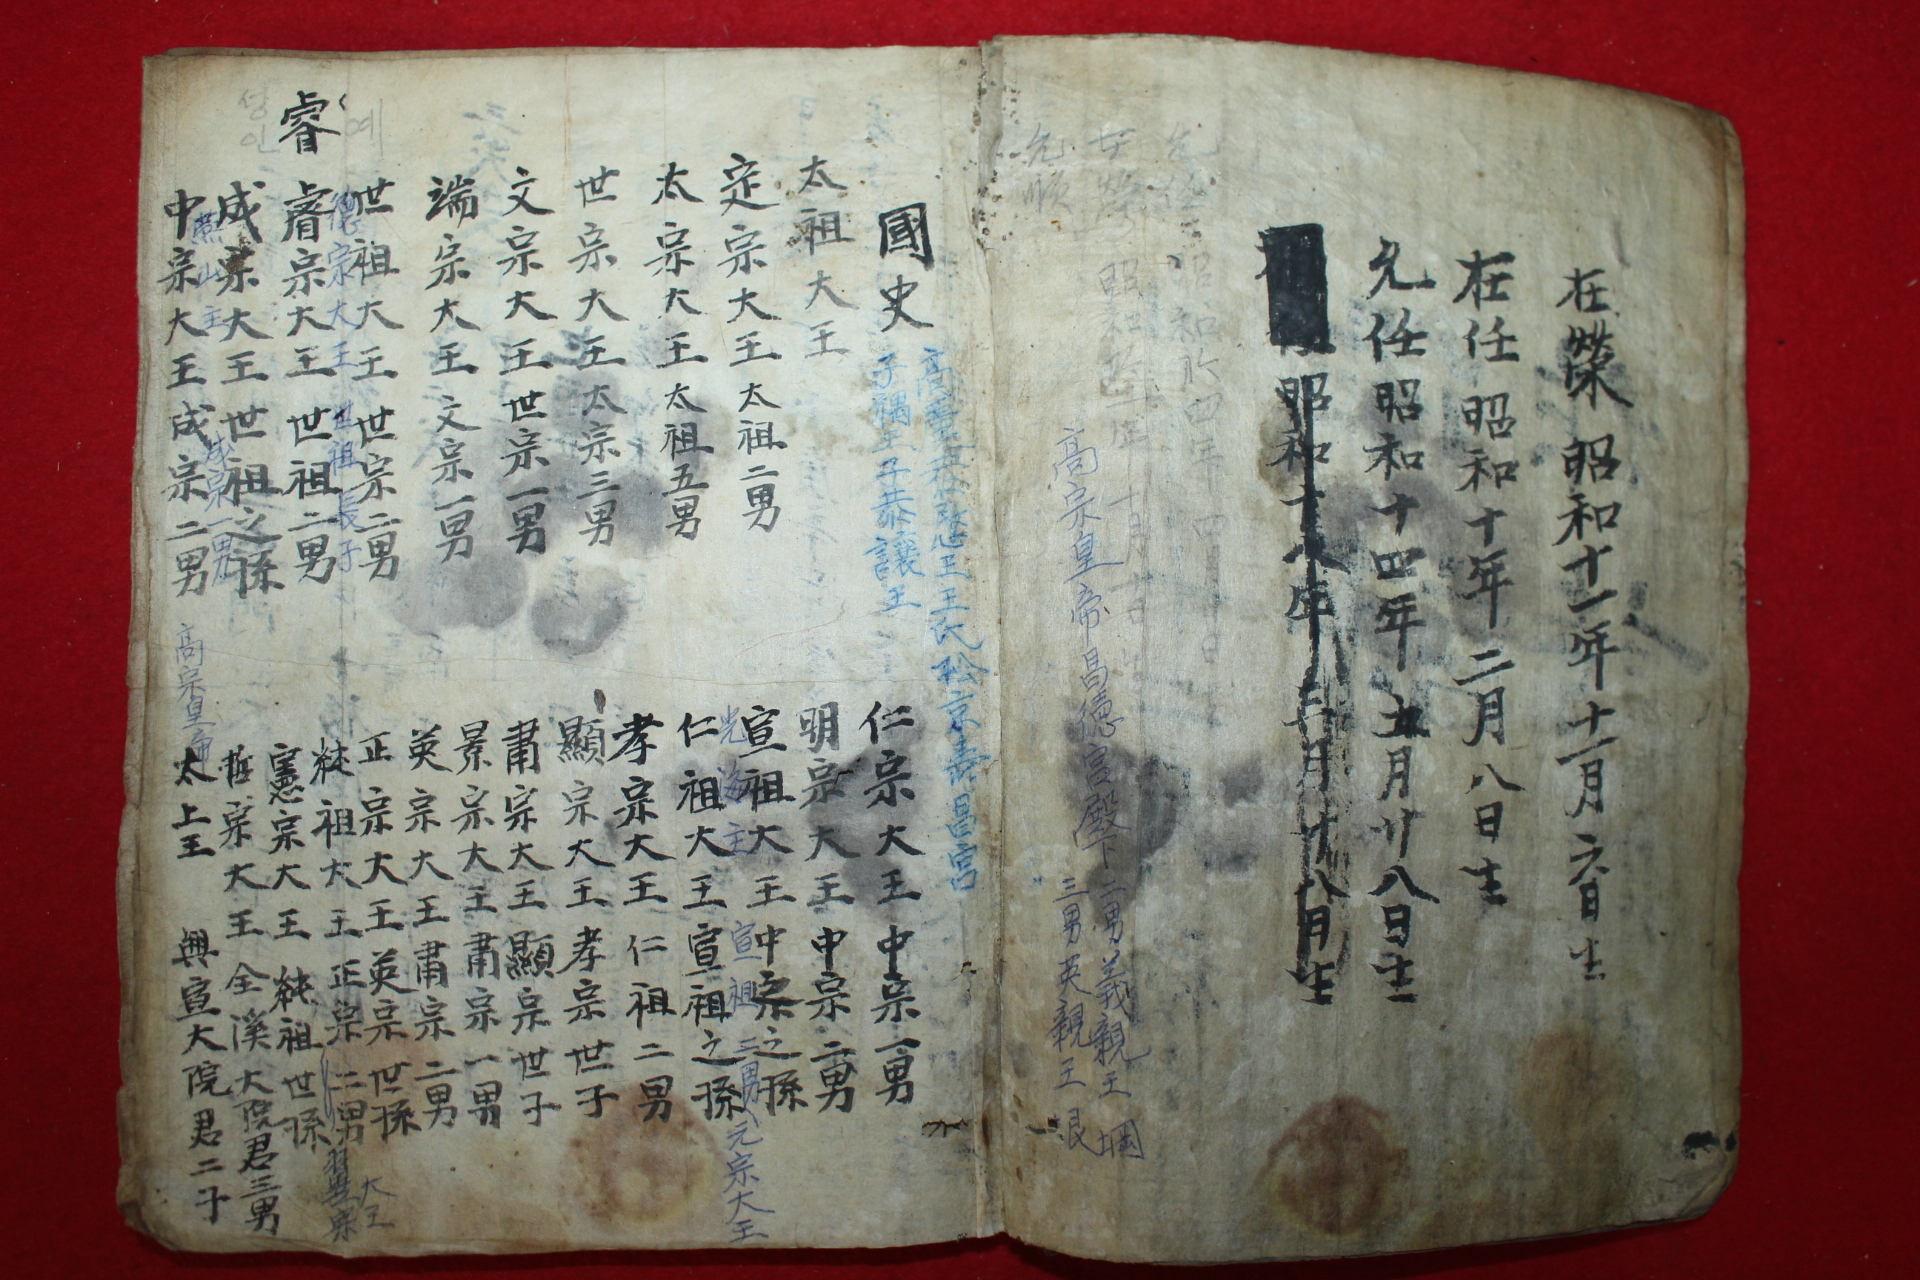 在榮 昭和十一年十一月六日生
在任 昭和十年二月八日生
允任 昭和十四年五月廿八日生
昭和十八年 月廿八日生
昭和 四年 四月 日
女榮 昭和 年 十月 日
允順
高宗皇帝 昌德宮殿下 二男義親王堈
三男英親王垠
國史
王氏松京壽昌宮
子禑王子恭讓王
太祖大王
定宗大王 太祖二男
太宗大王 太祖五男
世宗大王 太宗三男
文宗大王 世宗一男
端宗大王 文宗一男
世祖大王 世宗二男
德宗大王 世祖長子
예
睿
睿宗大王 世祖二男
성
인
成宗大王 世祖之孫
燕山主 成宗一男
中宗大王 成宗二男
仁宗大王 中宗一男
明宗大王 中宗二男
宣祖大王 中宗之孫
光海主 宣祖二男
元宗大王
仁祖大王 宣祖之孫
孝宗大王 仁祖二男
顯宗大王 孝宗世子
肅宗大王 顯宗世子
景宗大王 肅宗一男
英宗大王 肅宗二男
正宗大王 英宗世孫
純祖大王 正宗二男
翼宗大王
憲宗大王 純祖世孫
哲宗大王 全溪大院君三男
高宗皇帝
太上王 興宣大院君二子